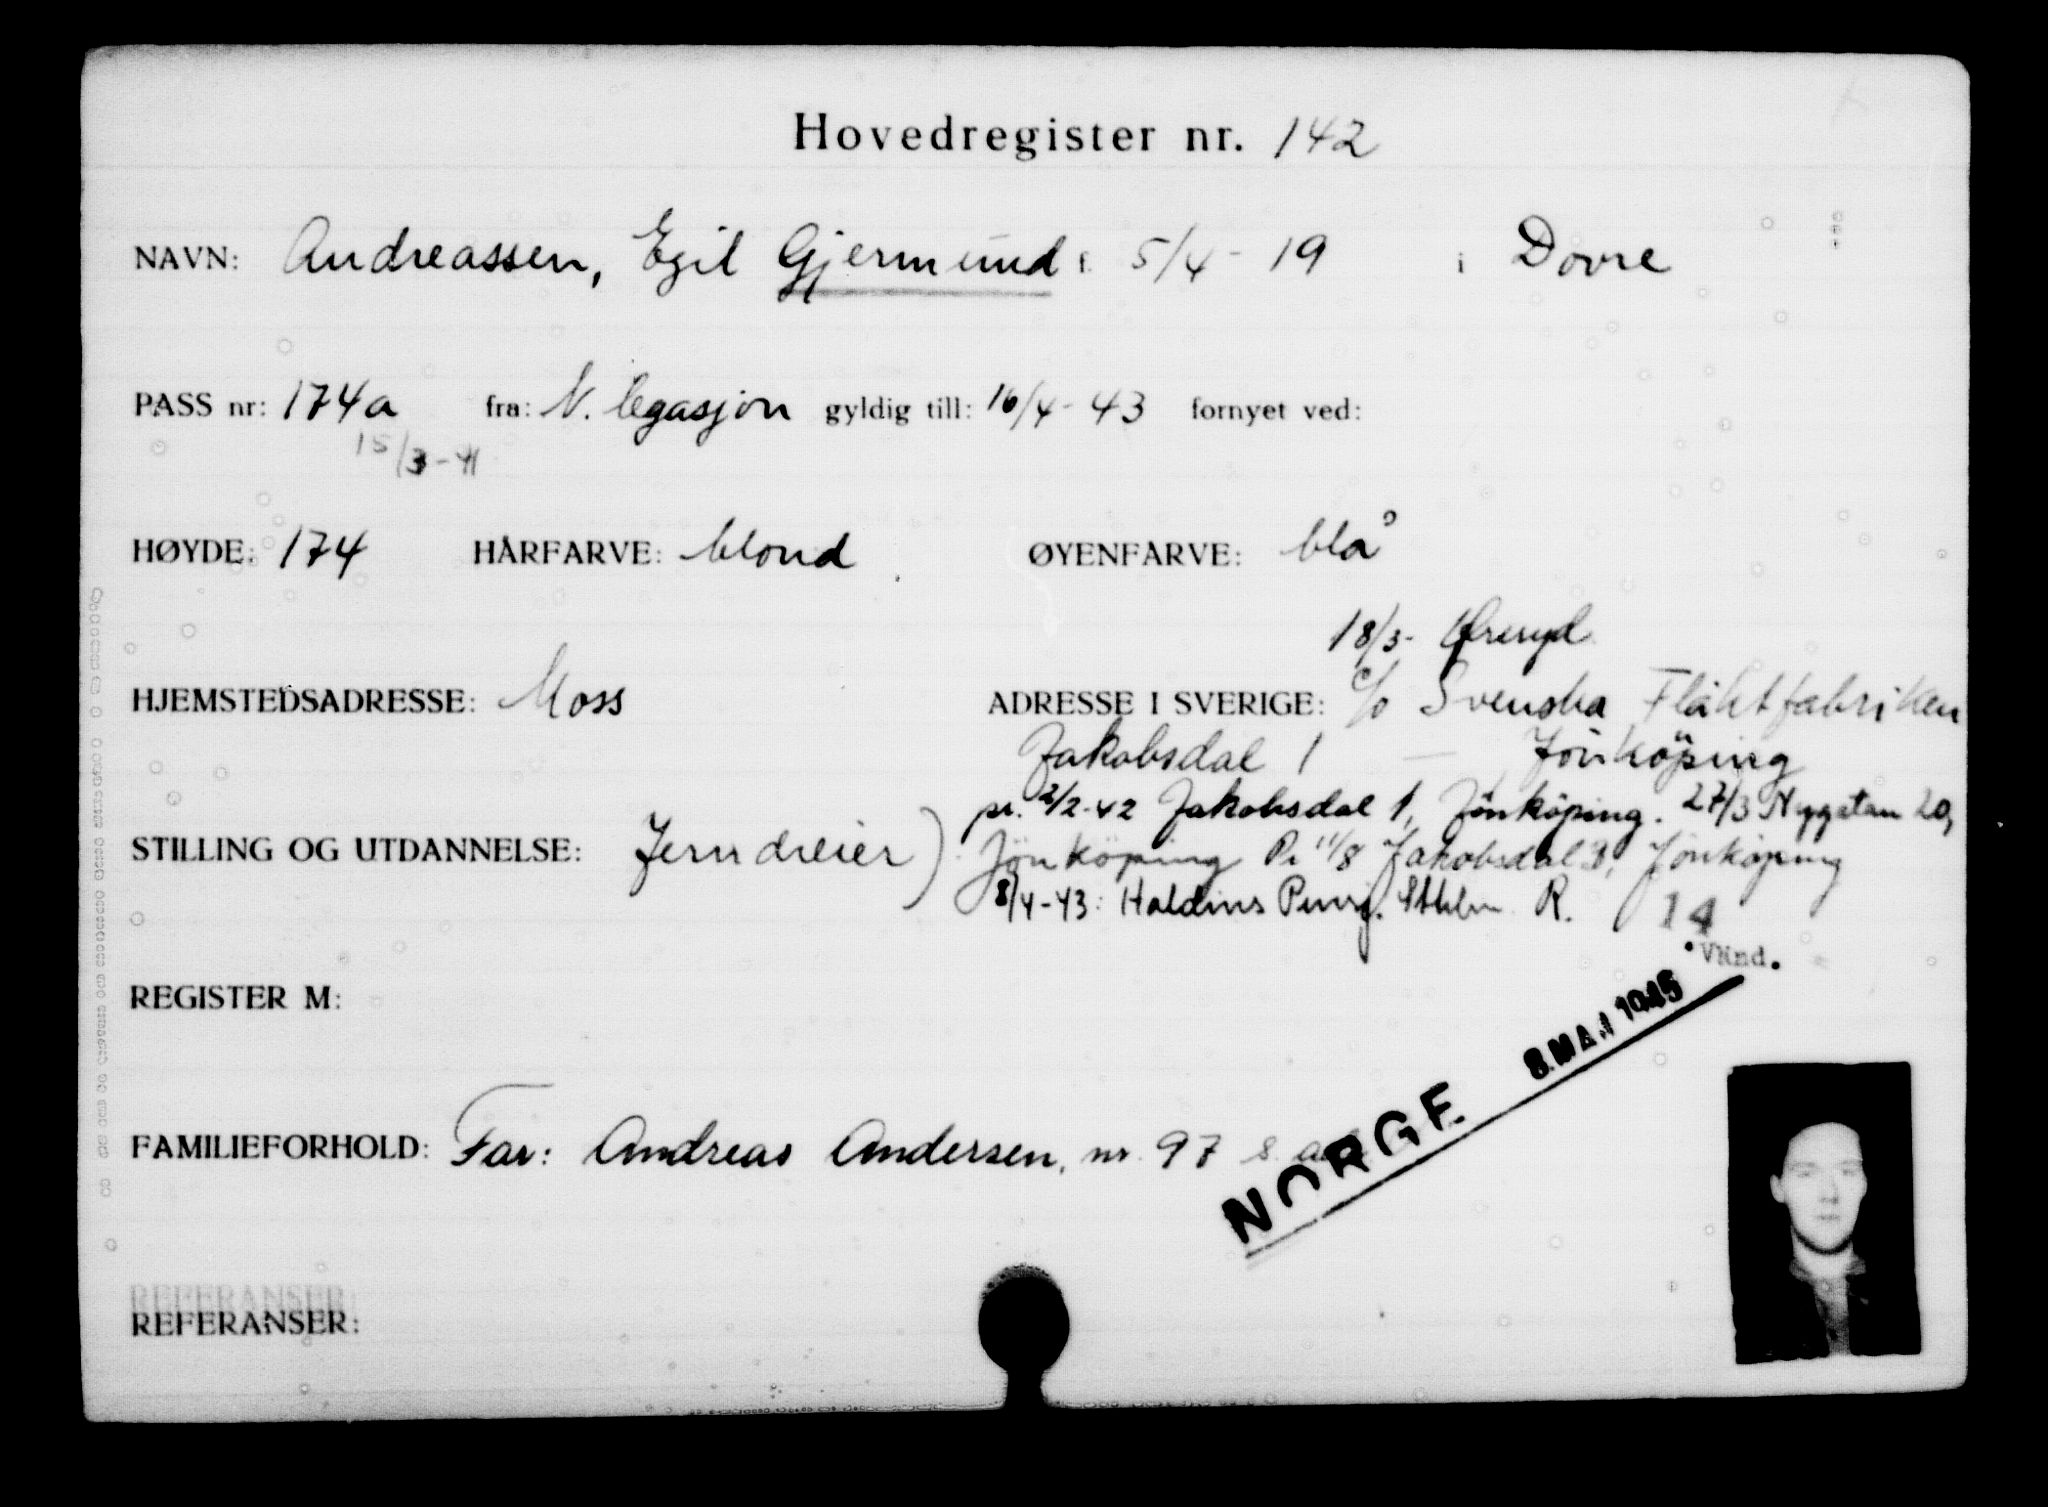 Hovedregister nr. 142
NAVN: Andreassen, Egil Gjermund f. 5/4 - 19 i Dovre
PASS nr: 174a fra: N. legasjon gyldig till: 16/4 - 43 fornyet ved:
15/3 - 41
HØYDE: 174 HÅRFARVE: blond ØYENFARVE: blå
18/3 - Øreryd
HJEMSTEDSADRESSE: Moss ADRESSE I SVERIGE: c/o Svenska Fläktfabriken
Jakobsdal 1 — Jönköping
pr. 2/2-42 Jakobsdal 1, Jönköping. 27/3 Nygatan 20,
STILLING OG UTDANNELSE: Jerndreier) Jönköping Pr 11/8 Jakobsdal 3, Jönköping
8/4-43: Haldins Pens. Sthlm R. 14
REGISTER M:
8. MAI 1945
NORGE
FAMILIEFORHOLD: Far: Andreas Andersen, nr. 97
REFERANSER
REFERANSER: